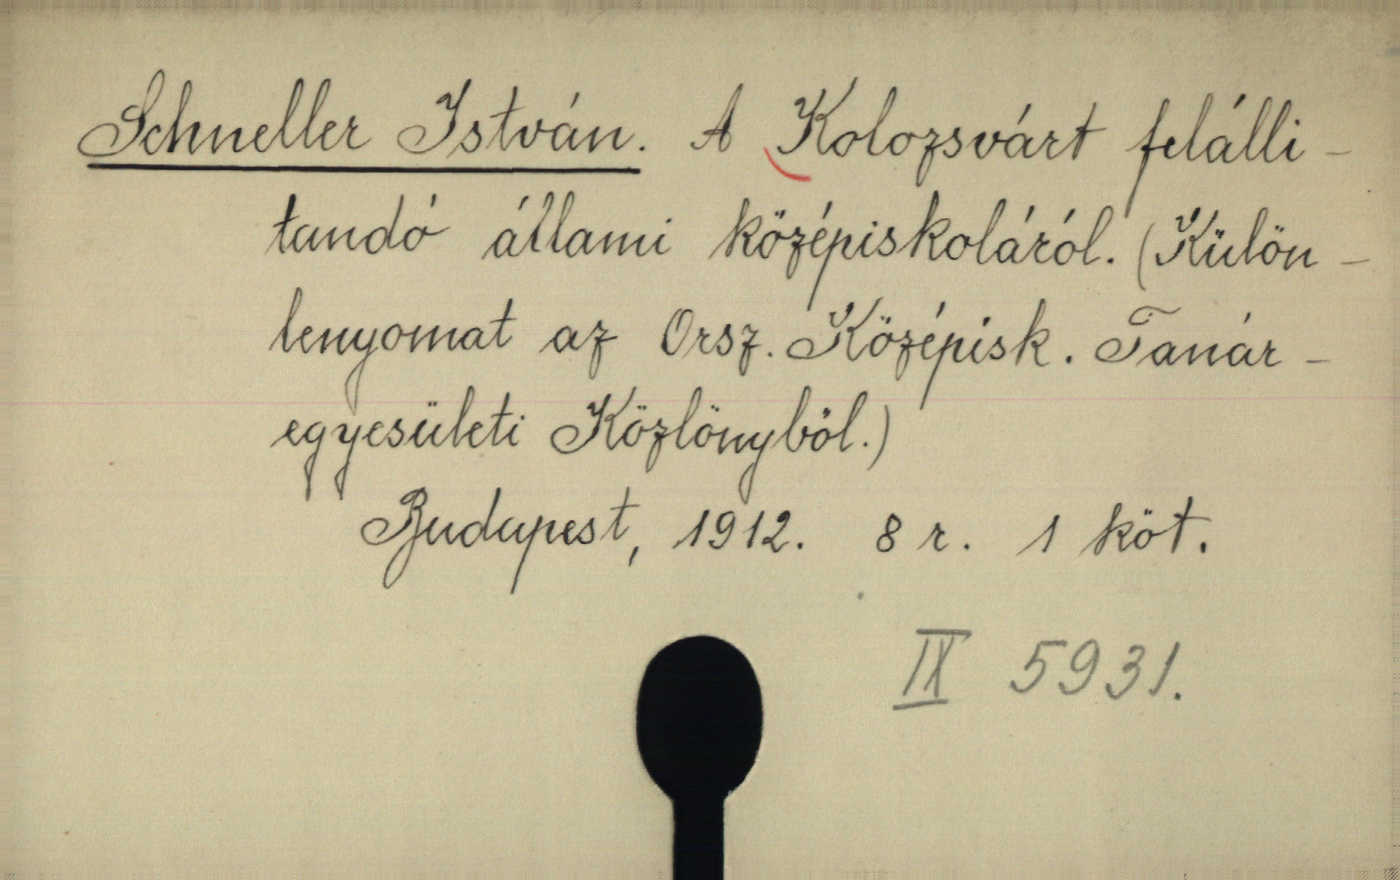 Schneller István. A Kolozsvárt felálli-
tandó állami középiskoláról. (Külön-
lenyomat az Orsz. Középisk. Tanár-
egyesületi Közlönyből.)
Budapest, 1912. 8 r. 1 köt.
IX 5931.